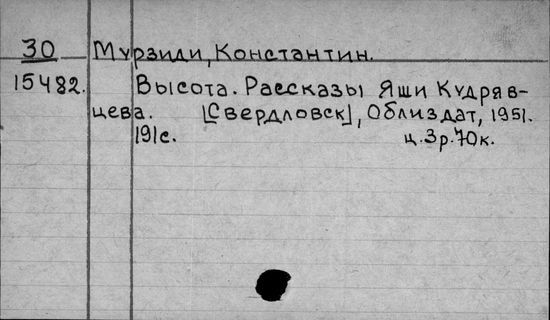 30 Мурзиди, Константин.
15482. Высота. Рассказы Яши Кудряв-
цева. [Свердловск], Облиздат, 1951.
191с. ц. 3р. 70к.